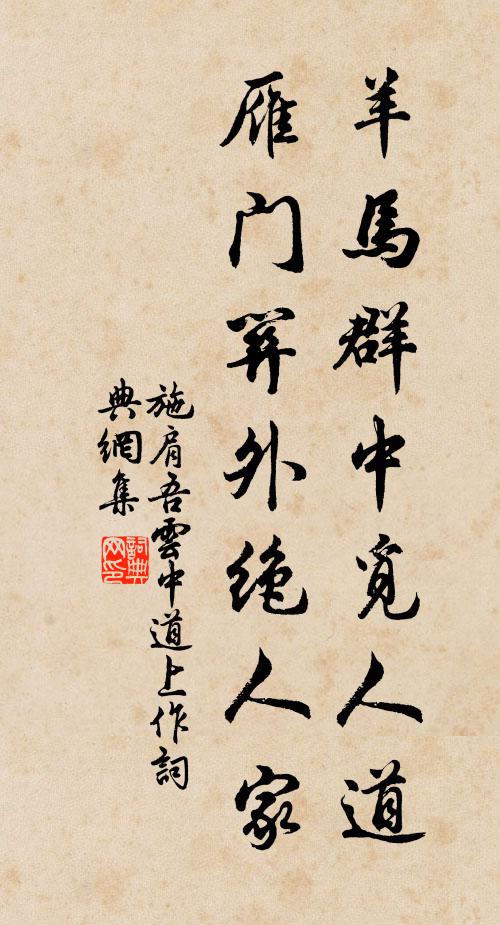 羊馬群中覓人道
雁門關外絶人家
施肩吾雲中道上作詞
典網集
詞典
网印